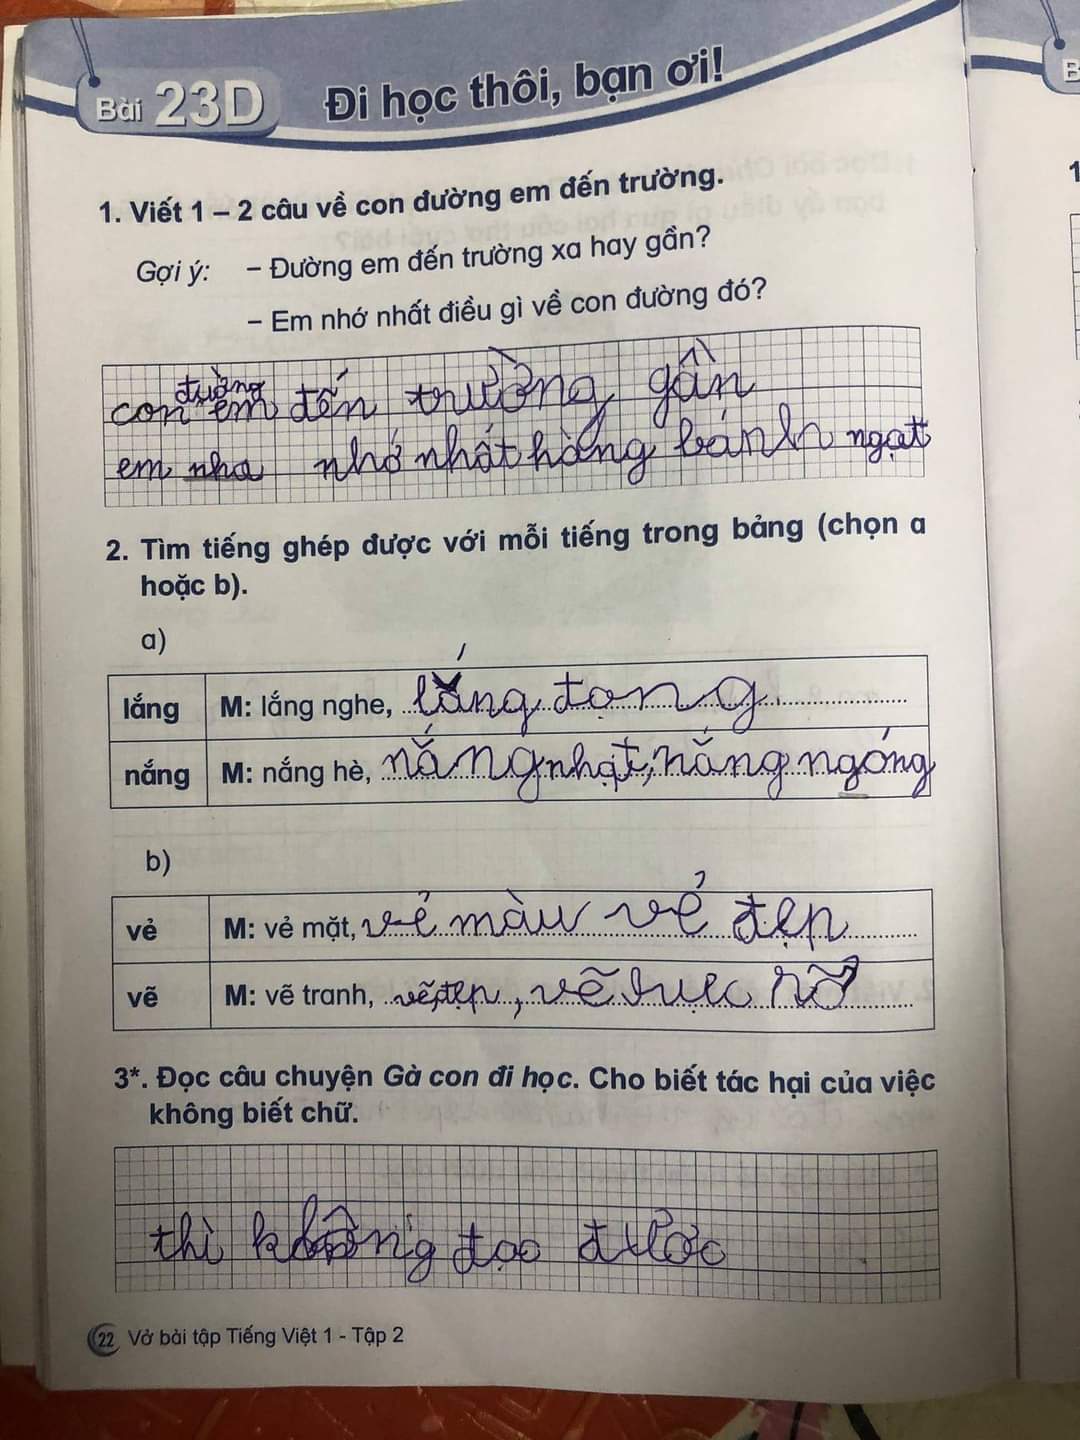 Bài 23D Đi học thôi, bạn ơi!
1. Viết 1 – 2 câu về con đường em đến trường.
Gợi ý: – Đường em đến trường xa hay gần?
– Em nhớ nhất điều gì về con đường đó?
đường
con em đến trường gần
em nha nhớ nhất hàng bánh ngạt
2. Tìm tiếng ghép được với mỗi tiếng trong bảng (chọn a
hoặc b).
a)
lắng M: lắng nghe, lắng đọng
nắng M: nắng hè, nắng nhạt, nắng ngóng
b)
vẻ M: vẻ mặt, vẻ màu vẻ đẹp
vẽ M: vẽ tranh, vẽ đẹp, vẽ rỡ
3*. Đọc câu chuyện Gà con đi học. Cho biết tác hại của việc
không biết chữ.
thì không đọc được
22 Vở bài tập Tiếng Việt 1 - Tập 2
B
1